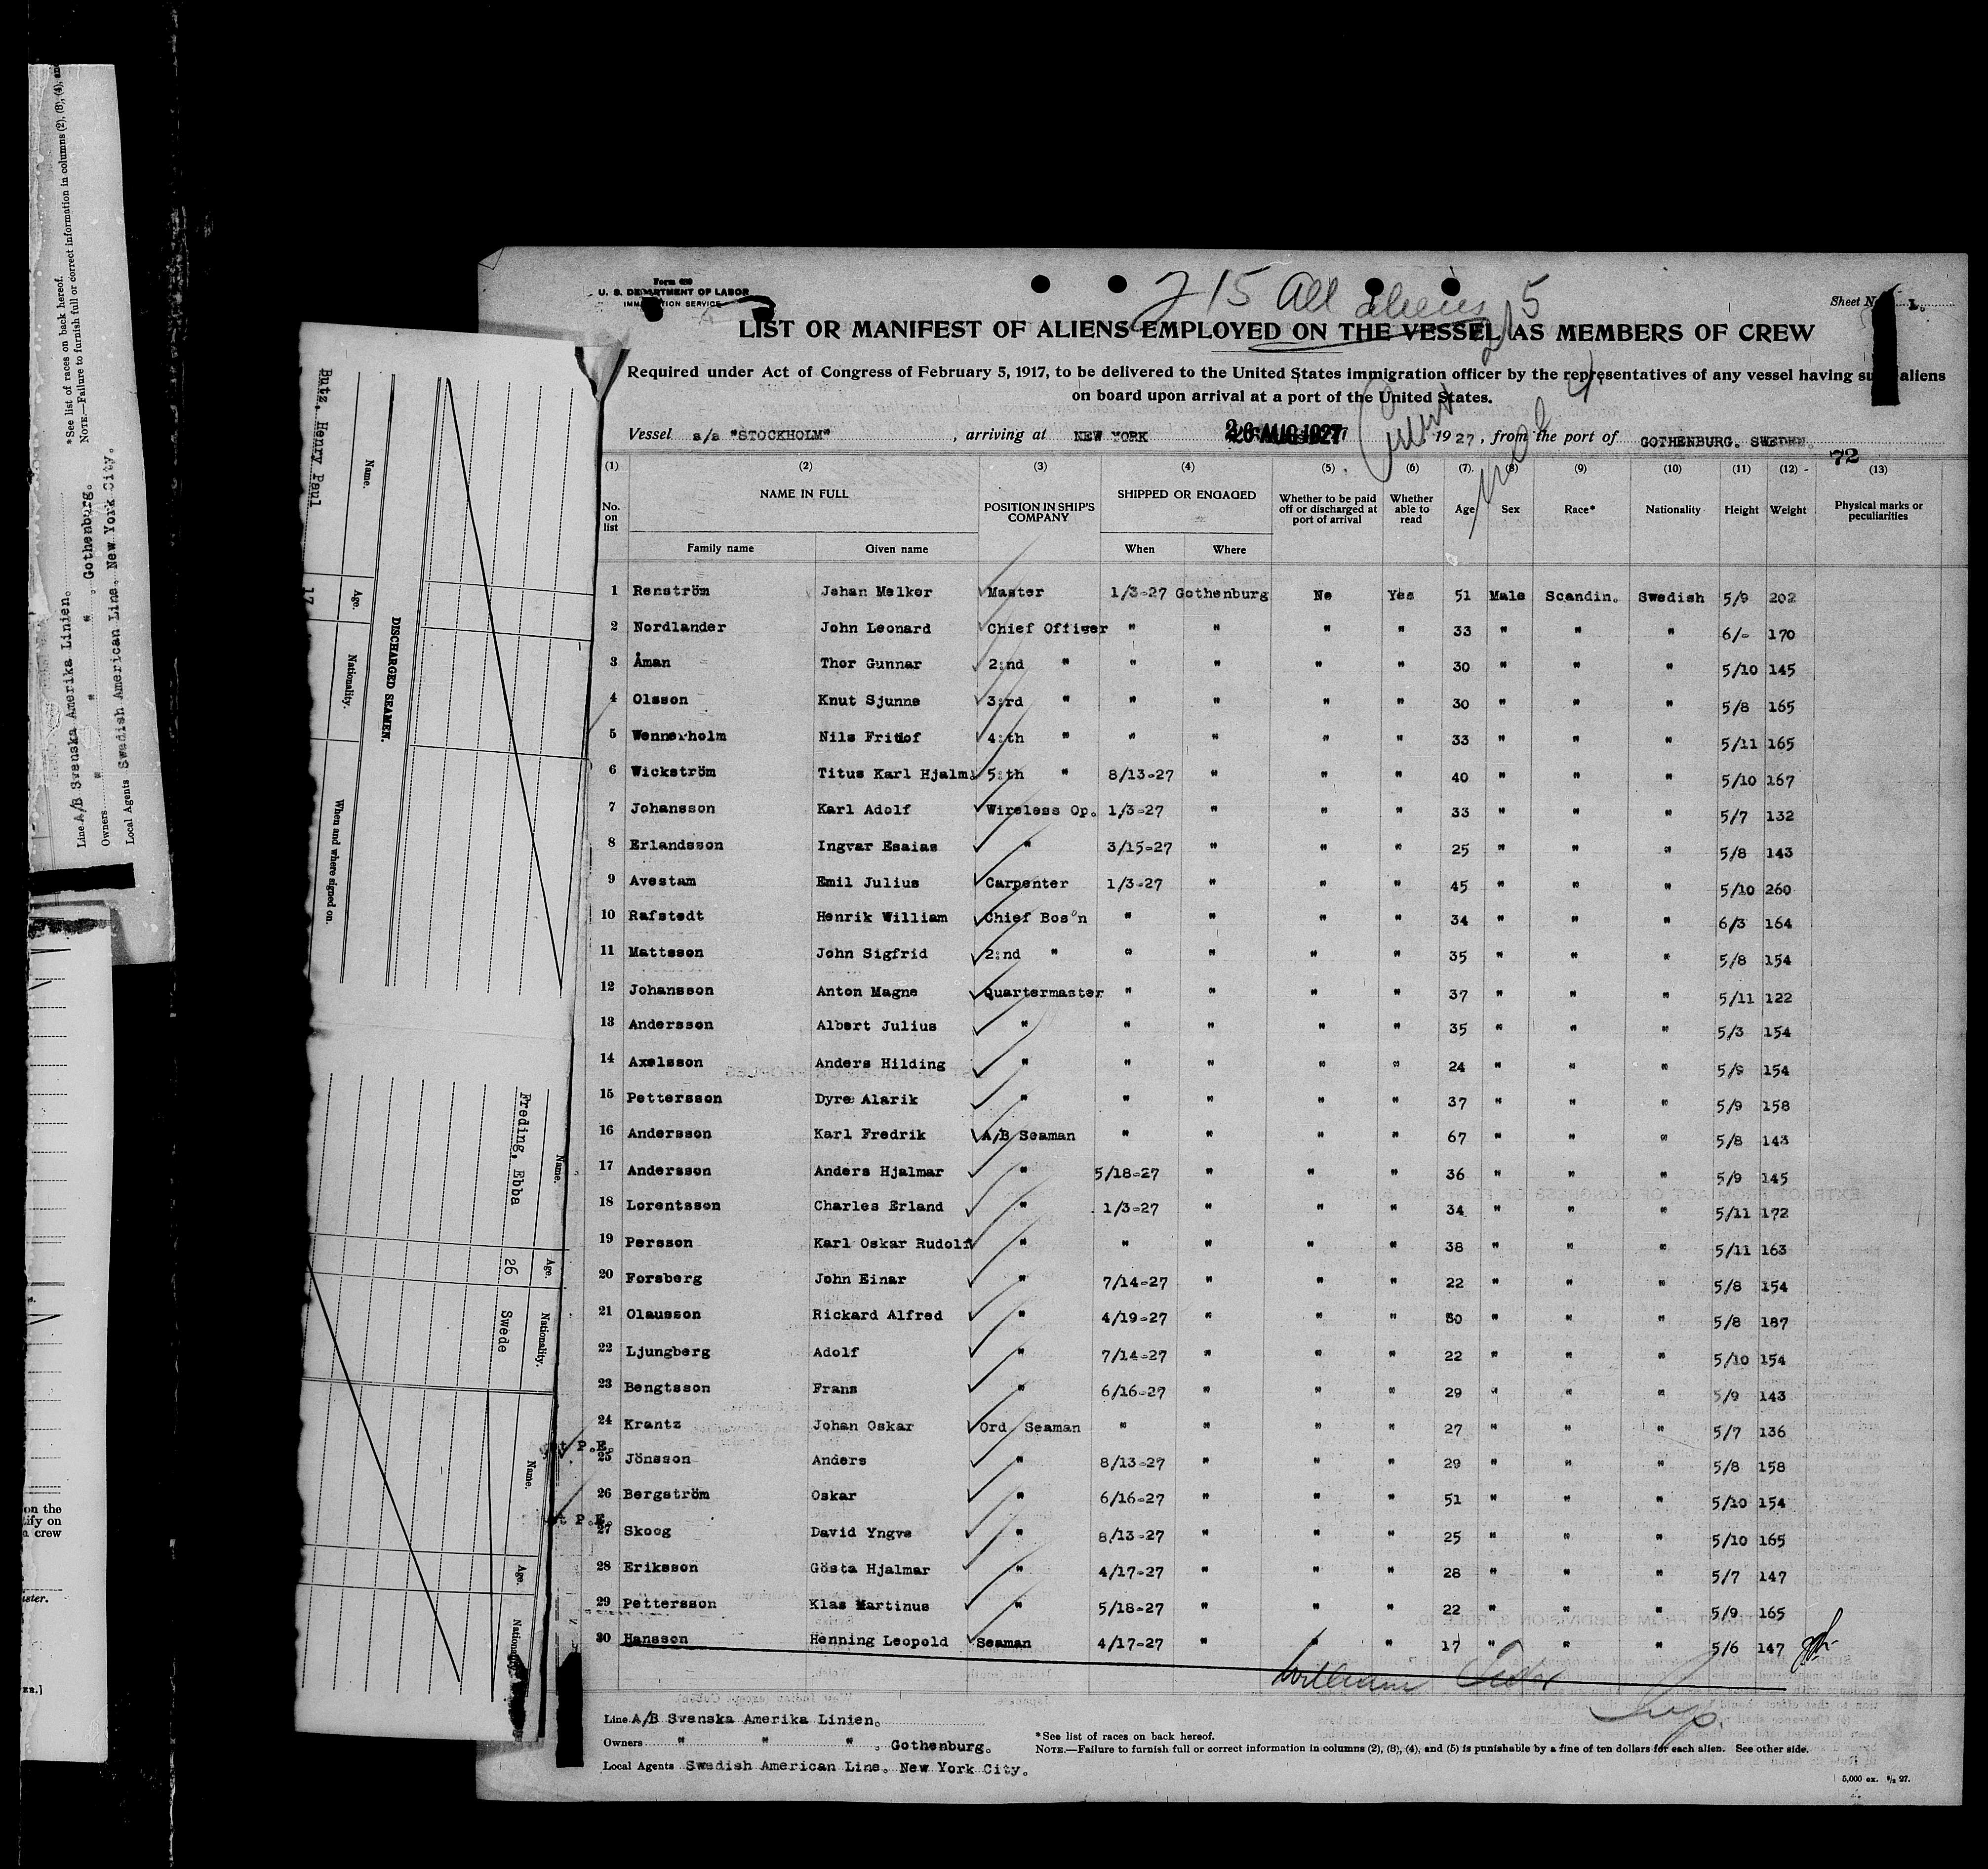 *See list of races on back hereof.
NOTE.—Failure to furnish full or correct information in columns (2), (3), (4), and
Line A/B Svenska Amerika Linien.
Owners " " " , Gothenburg.
Local Agents Swedish American Line. New York City.
on the
tify on
crew
DISCHARGED SEAMEN.
Name. Age. Nationality. When and where signed on
Butz, Henry Paul 17
Name. Age. Nationality.
Freding, Ebba 26 Swede
Name. Age. Nationality.
Form 680
U. S. DEPARTMENT OF LABOR
IMMIGRATION SERVICE
215 All aliens
215
Sheet No. 1.
LIST OR MANIFEST OF ALIENS EMPLOYED ON THE VESSEL AS MEMBERS OF CREW
Required under Act of Congress of February 5, 1917, to be delivered to the United States immigration officer by the representatives of any vessel having such aliens
on board upon arrival at a port of the United States.
Vessel s/s "STOCKHOLM" , arriving at NEW YORK 26 AUG 1927 1927, from the port of GOTHENBURG. SWEDEN.
72
(1) (2) (3) (4) (5) (6) (7) (8) (9) (10) (11) (12) (13)
No. on list NAME IN FULL POSITION IN SHIP'S COMPANY SHIPPED OR ENGAGED Whether to be paid off or discharged at port of arrival Whether able to read Age Sex Race* Nationality Height Weight Physical marks or peculiarities
Family name Given name When Where
1 Renström Johan Melker Master 1/3-27 Gothenburg No Yes 51 Male Scandin. Swedish 5/9 202
2 Nordlander John Leonard Chief Officer " " " " 33 " " " 6/- 170
3 Åman Thor Gunnar 2:nd " " " " " 30 " " " 5/10 145
4 Olsson Knut Sjunne 3:rd " " " " " 30 " " " 5/8 165
5 Wennerholm Nils Fritiof 4:th " " " " " 33 " " " 5/11 165
6 Wickström Titus Karl Hjalm. 5:th " 8/13-27 " " " 40 " " " 5/10 167
7 Johansson Karl Adolf Wireless Op. 1/3-27 " " " 33 " " " 5/7 132
8 Erlandsson Ingvar Esaias " 3/15-27 " " " 25 " " " 5/8 143
9 Avestam Emil Julius Carpenter 1/3-27 " " " 45 " " " 5/10 260
10 Rafstedt Henrik William Chief Bos'n " " " " 34 " " " 6/3 164
11 Mattsson John Sigfrid 2:nd " " " " " 35 " " " 5/8 154
12 Johansson Anton Magne Quartermaster " " " " 37 " " " 5/11 122
13 Andersson Albert Julius " " " " " 35 " " " 5/3 154
14 Axelsson Anders Hilding " " " " " 24 " " " 5/9 154
15 Pettersson Dyre Alarik " " " " " 37 " " " 5/9 158
16 Andersson Karl Fredrik A/B Seaman " " " " 67 " " " 5/8 143
17 Andersson Anders Hjalmar " 5/18-27 " " " 36 " " " 5/9 145
18 Lorentsson Charles Erland " 1/3-27 " " " 34 " " " 5/11 172
19 Persson Karl Oskar Rudolf " " " " " 38 " " " 5/11 163
20 Forsberg John Einar " 7/14-27 " " " 22 " " " 5/8 154
21 Olausson Rickard Alfred " 4/19-27 " " " 30 " " " 5/8 187
22 Ljungberg Adolf " 7/14-27 " " " 22 " " " 5/10 154
23 Bengtsson Frans " 6/16-27 " " " 29 " " " 5/9 143
24 Krantz Johan Oskar Ord Seaman " " " " 27 " " " 5/7 136
P.E.
25 Jönsson Anders " 8/13-27 " " " 29 " " " 5/8 158
26 Bergström Oskar " 6/16-27 " " " 51 " " " 5/10 154
P.E.
27 Skoog David Yngve " 8/13-27 " " " 25 " " " 5/10 165
28 Eriksson Gösta Hjalmar " 4/17-27 " " " 28 " " " 5/7 147
29 Pettersson Klas Martinus " 5/18-27 " " " 22 " " " 5/9 165
30 Hansson Henning Leopold Seaman 4/17-27 " " " 17 " " " 5/6 147
William
Insp.
Line A/B Svenska Amerika Linien.
Owners " " " , Gothenburg.
Local Agents Swedish American Line. New York City.
*See list of races on back hereof.
NOTE.—Failure to furnish full or correct information in columns (2), (3), (4), and (5) is punishable by a fine of ten dollars for each alien. See other side.
5,000 ex. 27.